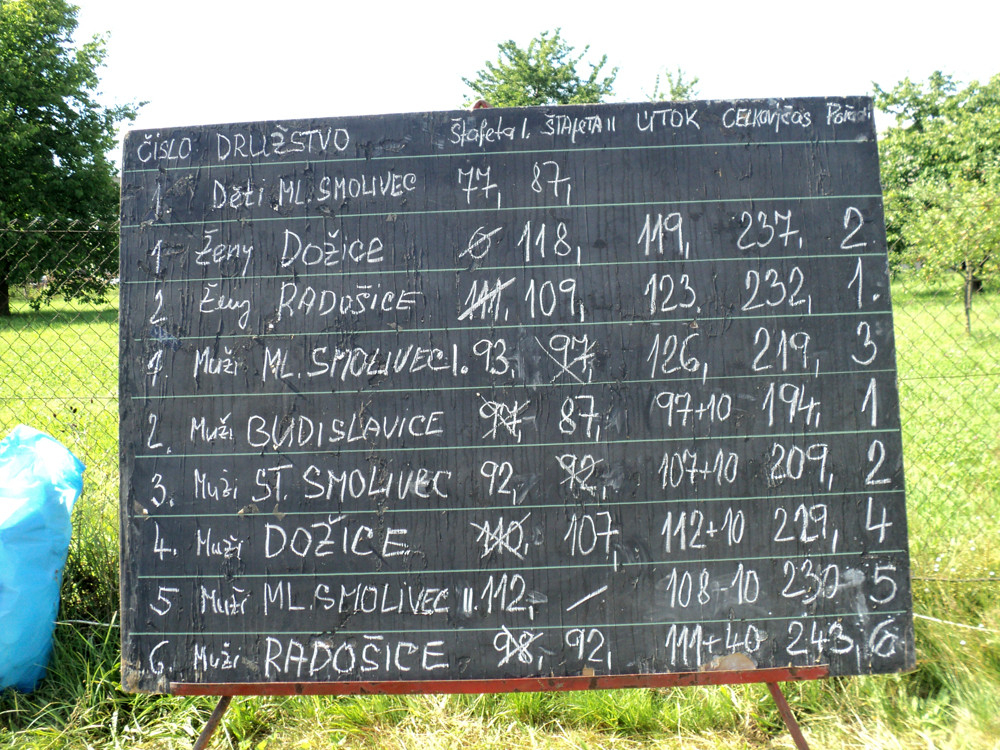 ČÍSLO DRUŽSTVO Štafeta I. ŠTAFETA II ÚTOK CELKOVÝ ČAS
1. Děti ML. SMOLIVEC 77, 87,
1. Ženy DOŽICE 6 118, 119, 237, 2.
2 Ženy RADOŠICE 111, 109, 123. 232, 1.
1. Muži ML. SMOLIVEC I. 93, 97, 126, 219, 3
2. Muži BUDISLAVICE 87, 97+10 194, 1
3. Muži ST. SMOLIVEC 92, 92, 107+10 209, 2
4. Muži DOŽICE 110, 107, 112+10 229, 4
5 Muži ML. SMOLIVEC II. 112, / 108-10 230 5
6. Muži RADOŠICE 98, 92, 111+40 243, 6